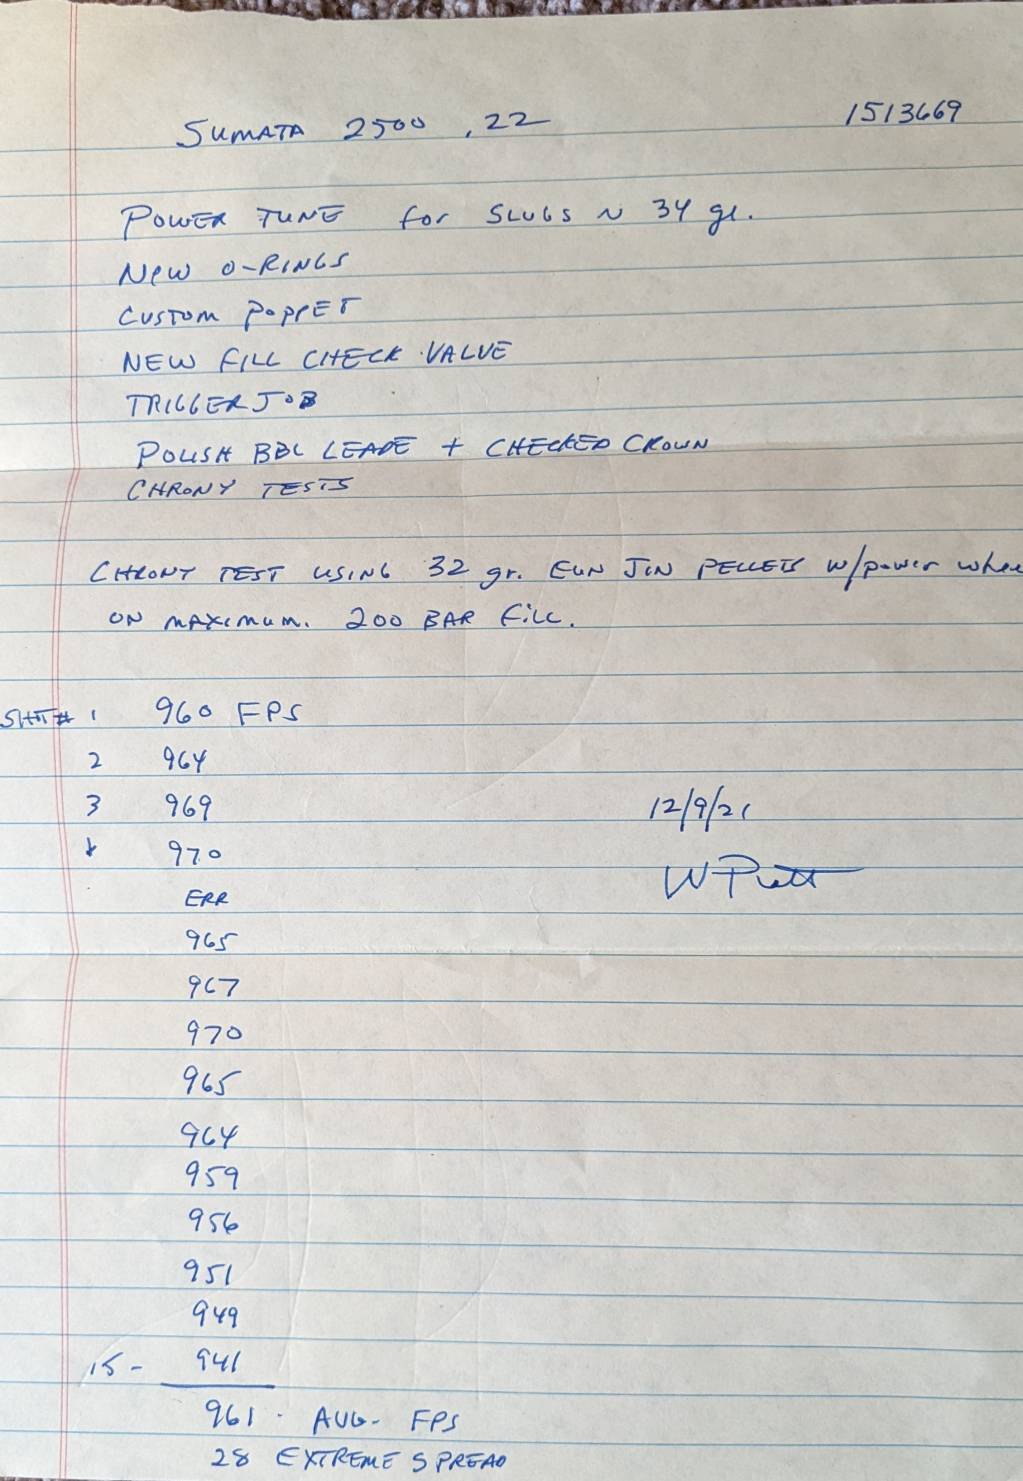 SUMATA 2500 .22 1513669
POWER TUNE for SLUGS ~ 34 gr.
NEW O-RINGS
CUSTOM POPPET
NEW FILL CHECK VALVE
TRIGGER JOB
POLISH BBL LEADE + CHECKED CROWN
CHRONY TESTS
CHRONY TEST USING 32 gr. EUN JIN PELLETS w/power whee
ON MAXIMUM. 200 BAR FILL.
SHOT # 1 960 FPS
2 964
3 969
↓ 970
ERR
965
967
970
965
964
959
956
951
949
15 - 941
961 . AVG. FPS
28 EXTREME SPREAD
12/9/21
W Pratt